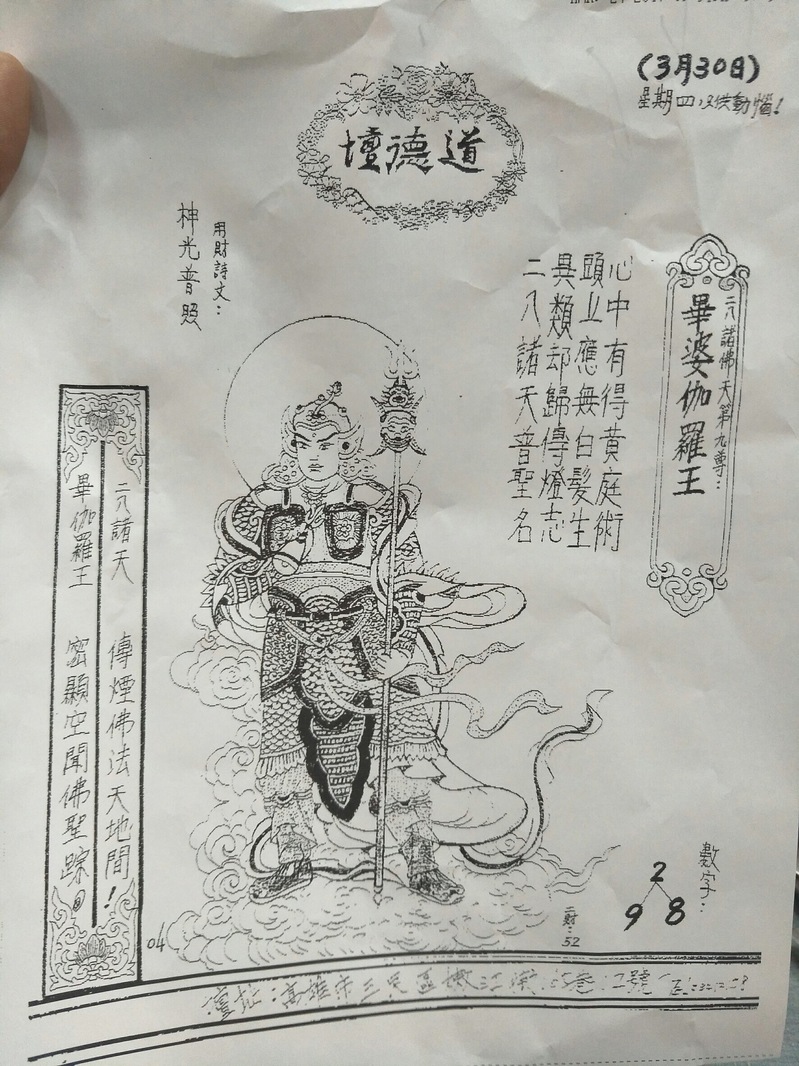 (3月30日)
星期四 仅供動惱!
道德壇
二八諸佛天第九尊:
畢婆伽羅王
心中有得黄庭術
頭上應無白髮生
異類却歸傳燈志
二八諸天普聖名
用財詩文:
神光普照
二八諸天 傳煙佛法天地間!
畢伽羅王 密顯空聞佛聖踪
數字:
2
9 8
二財:52
04
壇址:高雄市三民區